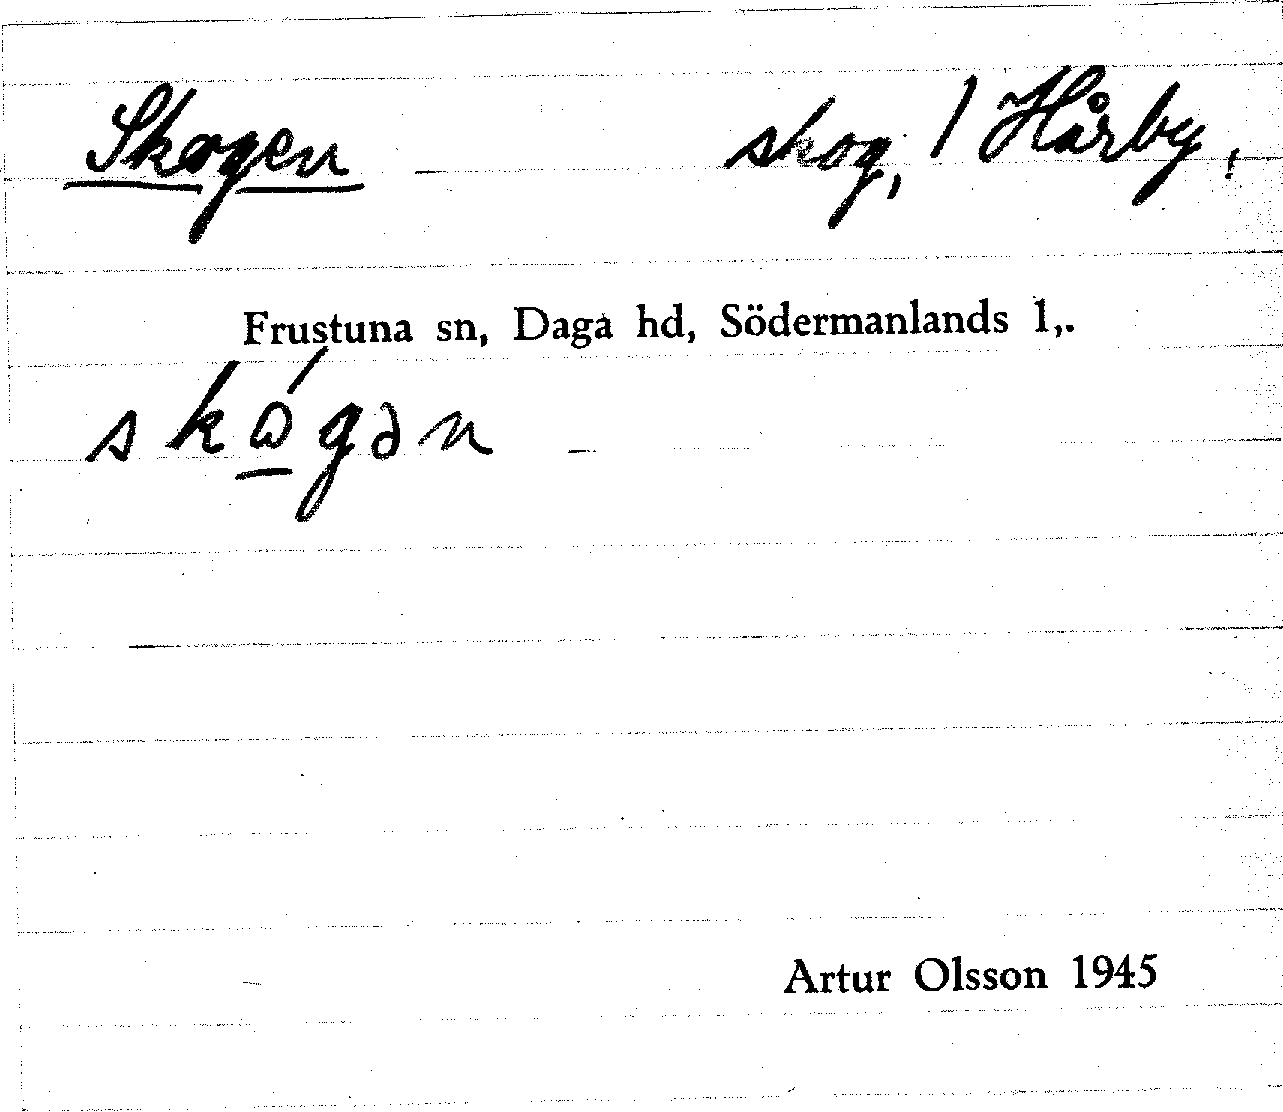 Skogen skog, / Hårby,
Frustuna sn, Daga hd, Södermanlands l,.
skώ̲gən
Artur Olsson 1945